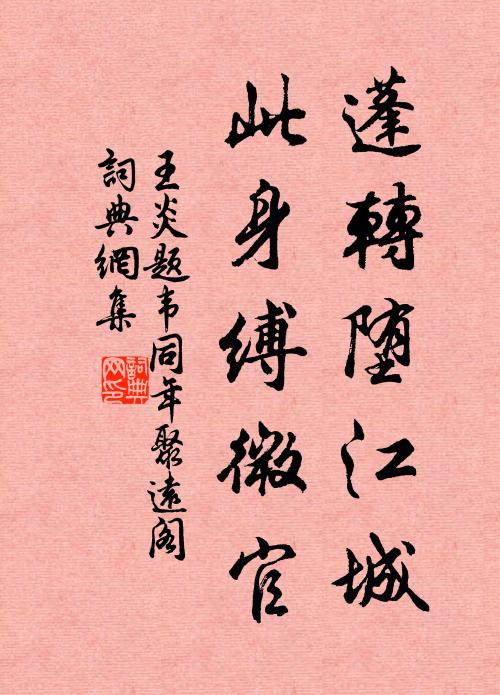 蓬轉堕江城
此身縛微官
王炎题韦同年聚遠阁
詞典網集
詞典网印